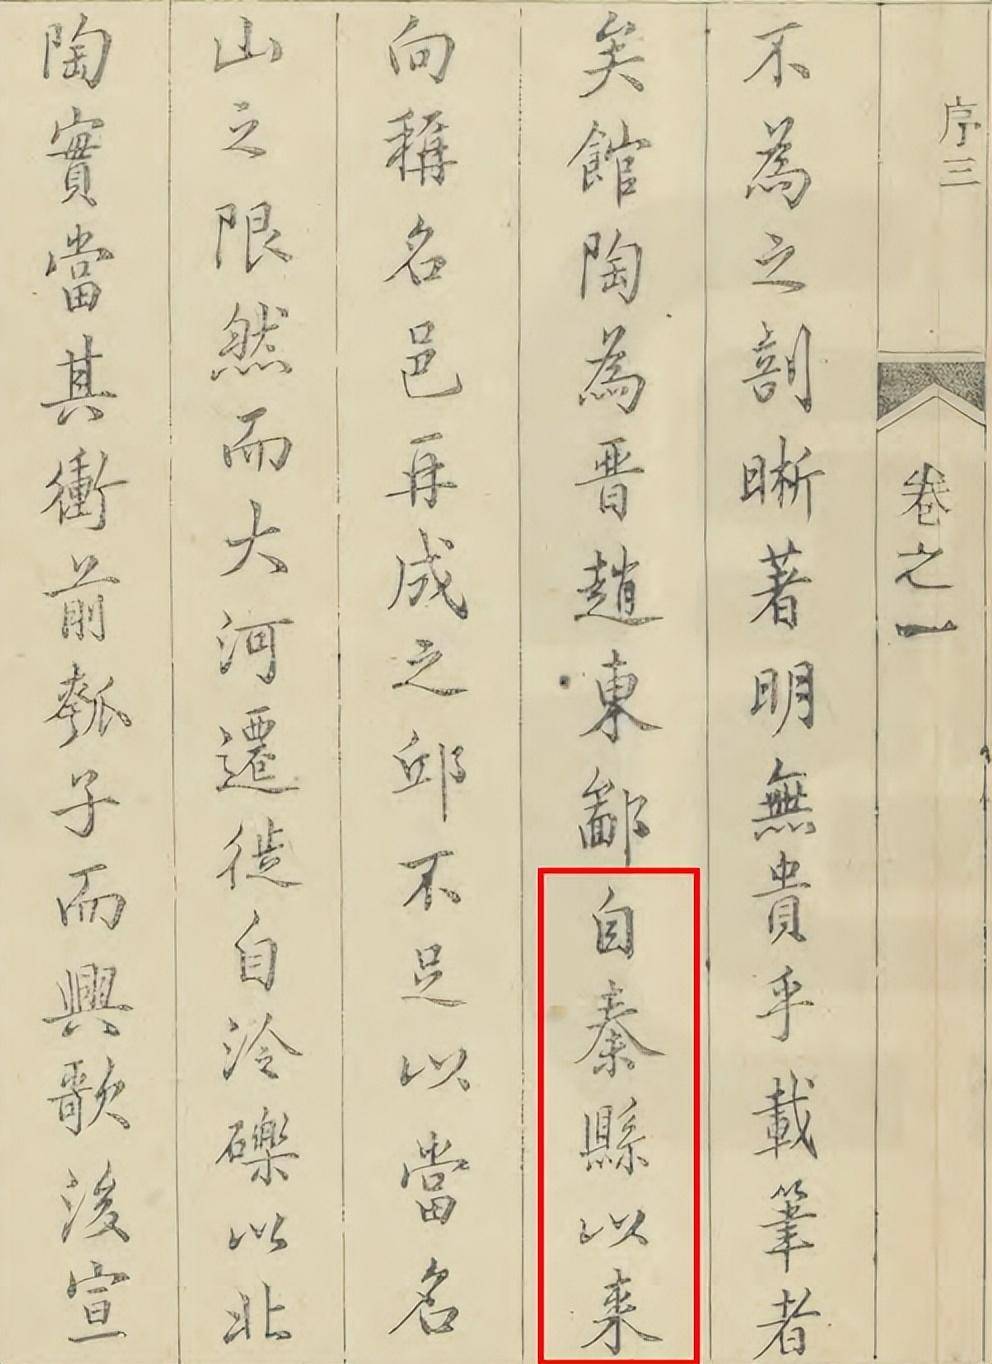 序三
卷之一
不為之剖晰著明無貴乎載筆者
矣館陶為晋趙東鄙自秦縣以来
向稱名邑再成之邱不足以當名
山之限然而大河遷徙自泠礫以北
陶實當其衝前瓠子而興歌後宣